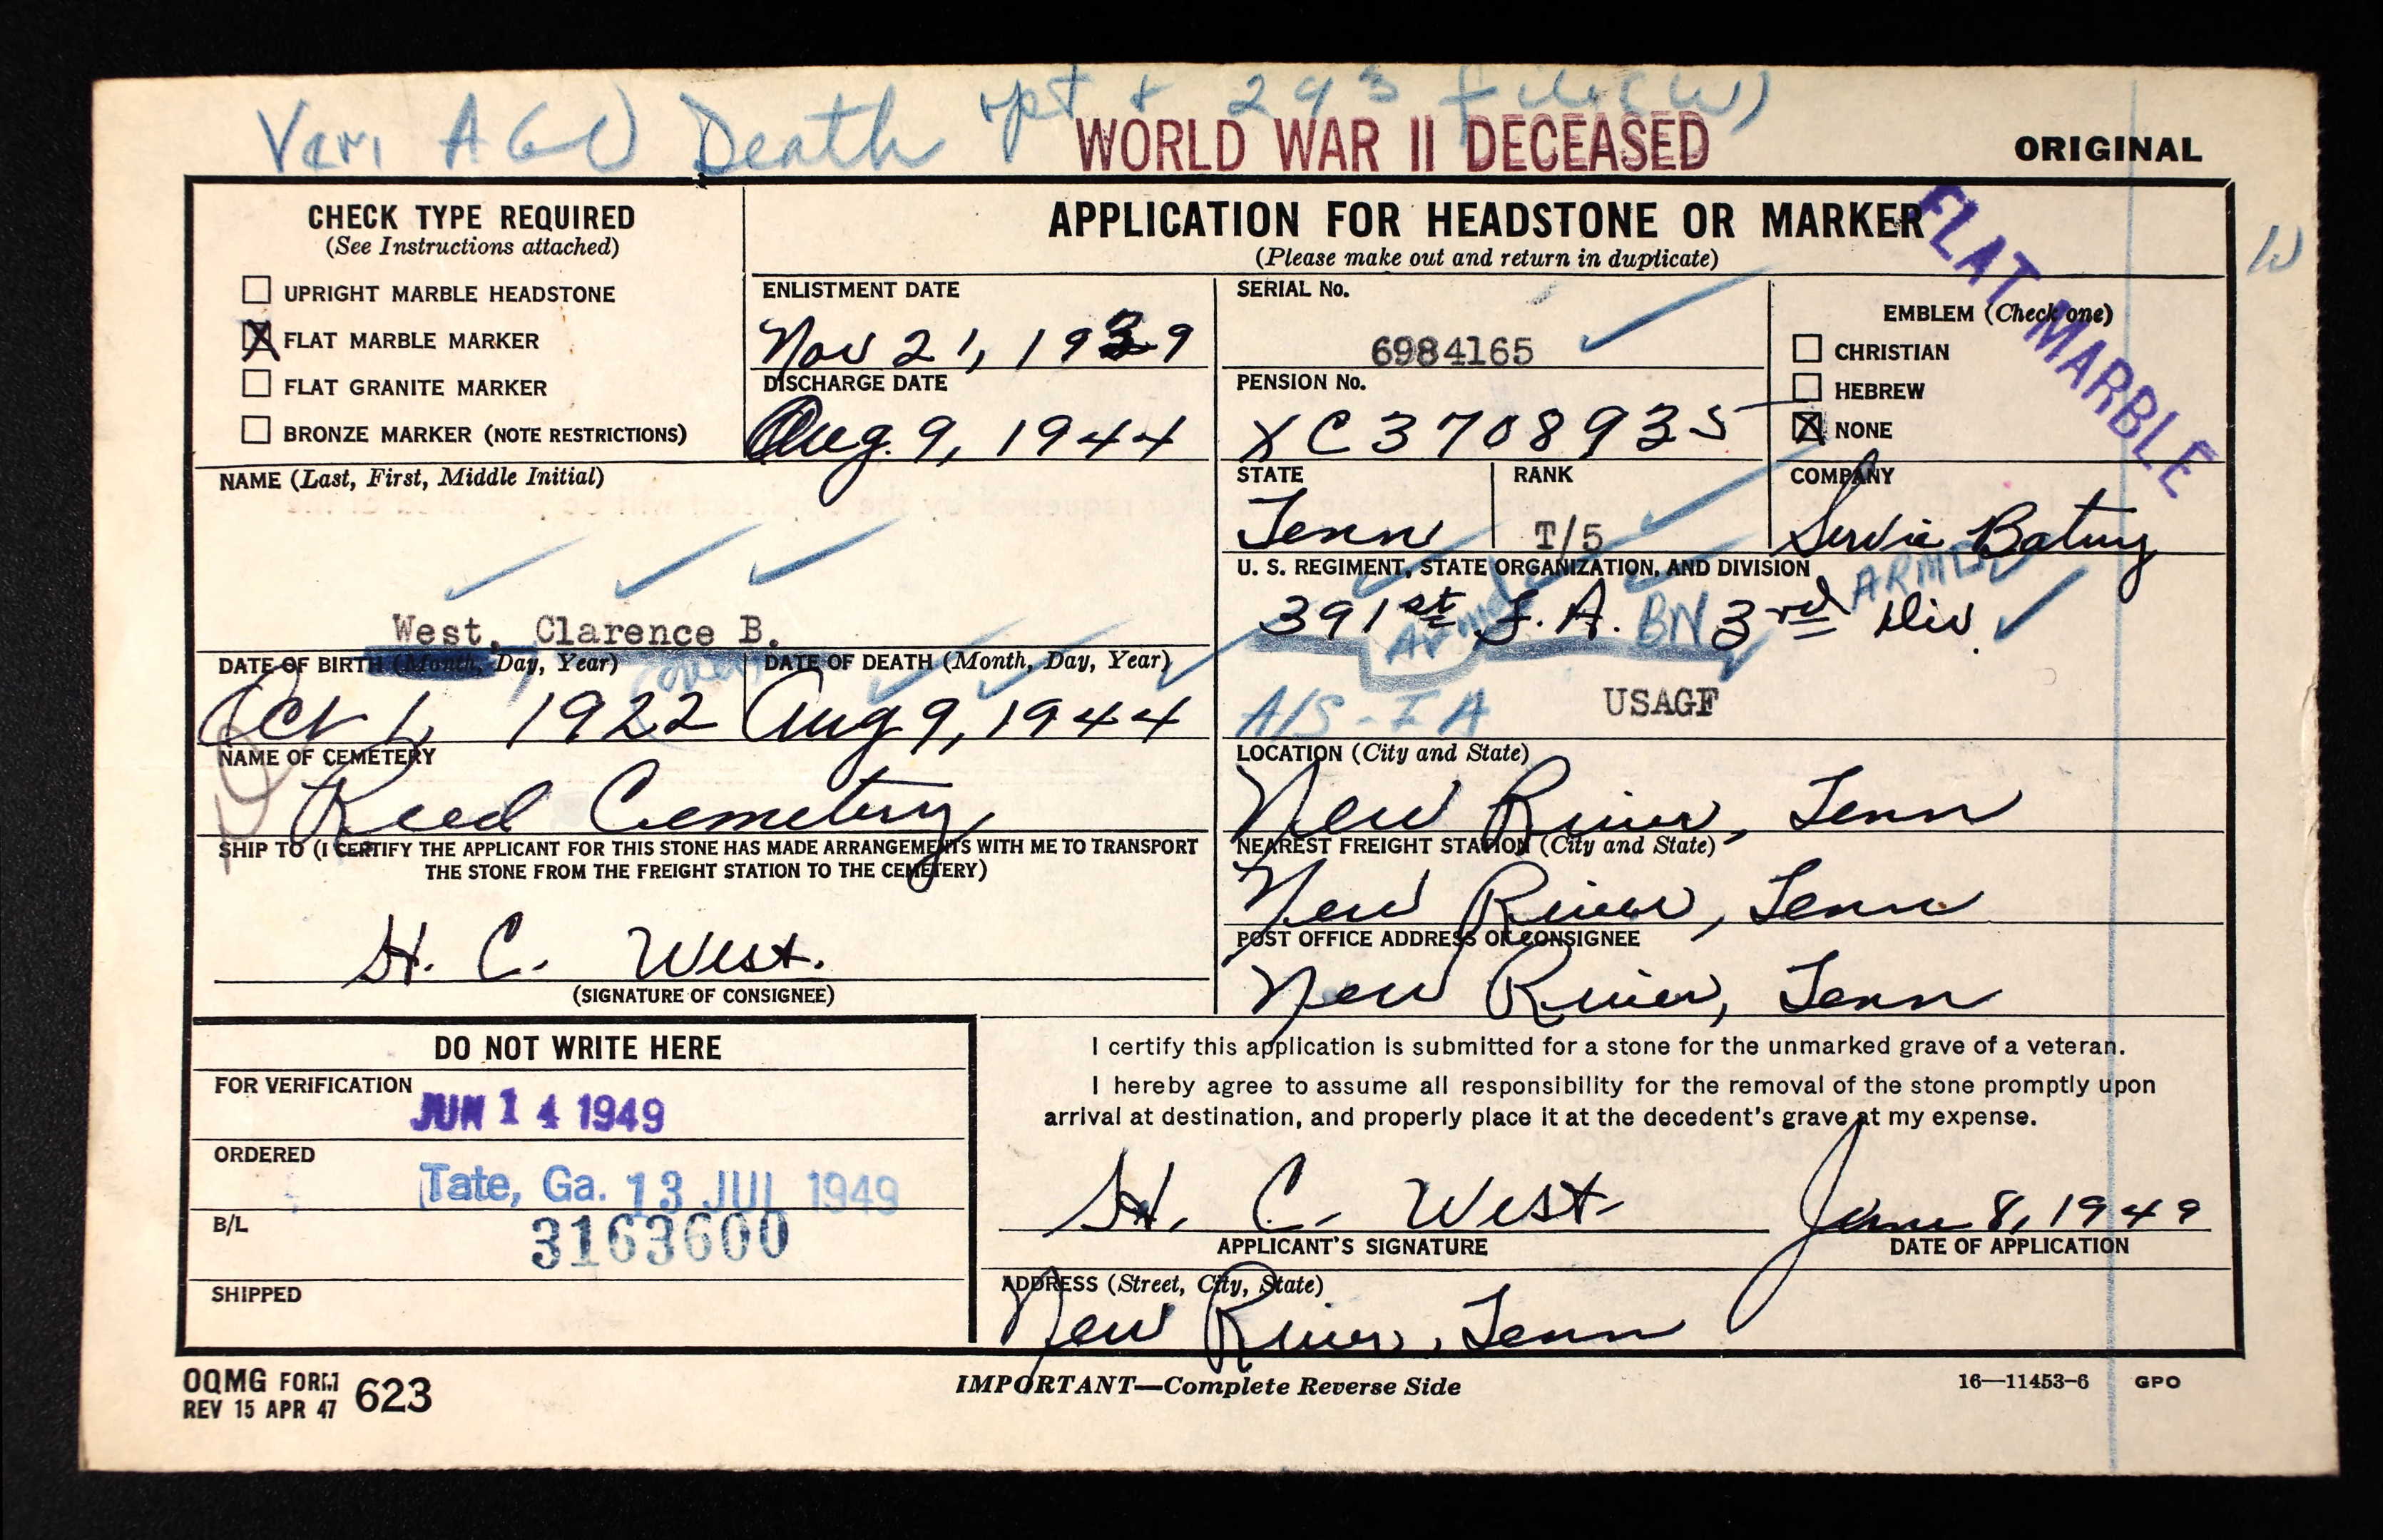 Veri AGO Death rpt & 293 file (W)
WORLD WAR II DECEASED
ORIGINAL
CHECK TYPE REQUIRED
(See Instructions attached)
UPRIGHT MARBLE HEADSTONE
X FLAT MARBLE MARKER
FLAT GRANITE MARKER
BRONZE MARKER (NOTE RESTRICTIONS)
APPLICATION FOR HEADSTONE OR MARKER
(Please make out and return in duplicate)
FLAT MARBLE
W
ENLISTMENT DATE
Nov 21, 1939
DISCHARGE DATE
Aug. 9, 1944
SERIAL No.
6984165
PENSION No.
XC3708935
EMBLEM (Check one)
CHRISTIAN
HEBREW
X NONE
NAME (Last, First, Middle Initial)
West, Clarence B.
STATE
Tenn
RANK
T/5
COMPANY
Servic Batury
U. S. REGIMENT, STATE ORGANIZATION, AND DIVISION
391st Armd F.A. BN 3rd ARMD Div.
A/S-I A
USAGF
DATE OF BIRTH (Month, Day, Year)
(over)
Oct 1, 1922
DATE OF DEATH (Month, Day, Year)
Aug 9, 1944
NAME OF CEMETERY
Reed Cemetery
LOCATION (City and State)
New River, Tenn
SHIP TO (I CERTIFY THE APPLICANT FOR THIS STONE HAS MADE ARRANGEMENTS WITH ME TO TRANSPORT
THE STONE FROM THE FREIGHT STATION TO THE CEMETERY)
H. C. West.
(SIGNATURE OF CONSIGNEE)
NEAREST FREIGHT STATION (City and State)
New River, Tenn
POST OFFICE ADDRESS OF CONSIGNEE
New River, Tenn
DO NOT WRITE HERE
FOR VERIFICATION
JUN 14 1949
ORDERED
Tate, Ga. 13 JUL 1949
B/L
3163600
SHIPPED
I certify this application is submitted for a stone for the unmarked grave of a veteran.
I hereby agree to assume all responsibility for the removal of the stone promptly upon
arrival at destination, and properly place it at the decedent's grave at my expense.
H. C. West
June 8, 1949
APPLICANT'S SIGNATURE
DATE OF APPLICATION
ADDRESS (Street, City, State)
New River, Tenn
OQMG FORM 623
REV 15 APR 47
IMPORTANT—Complete Reverse Side
16—11453-6 GPO